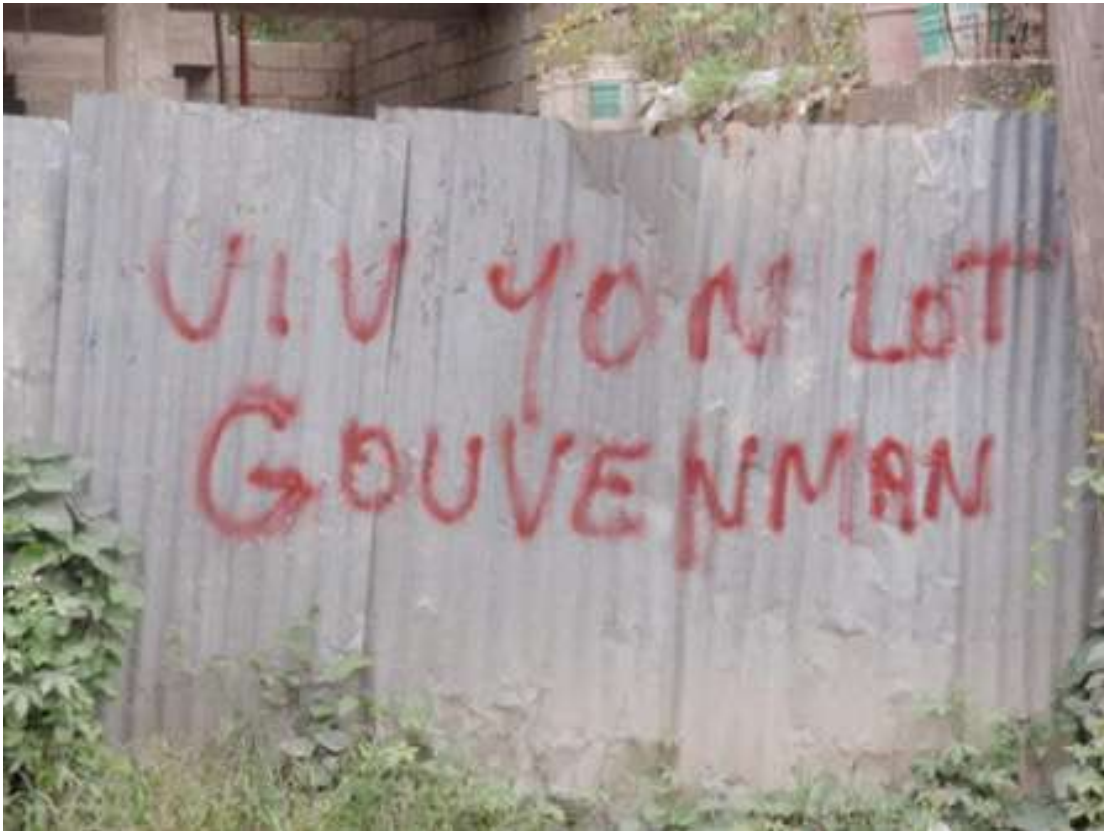 VIV YON LOT
GOUVENMAN